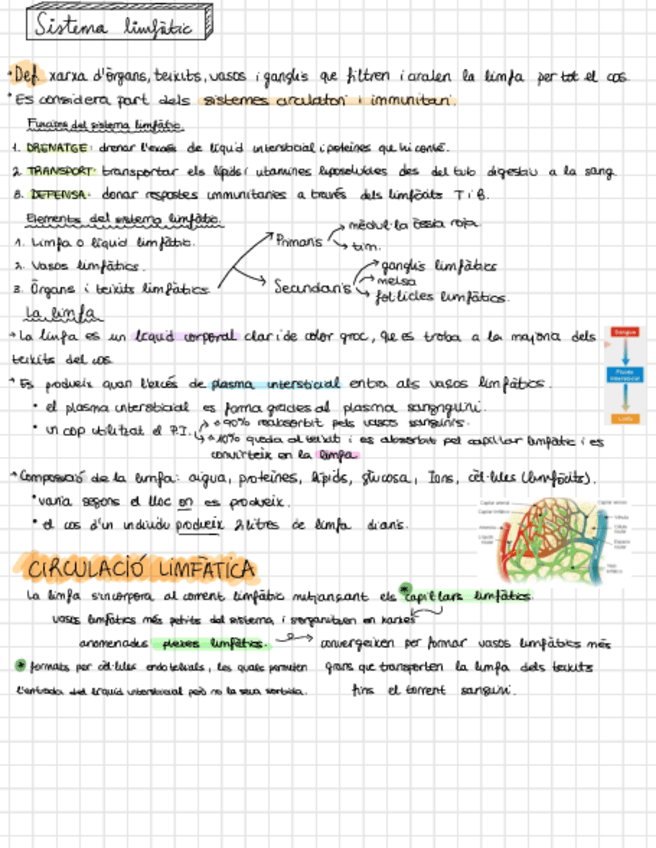 Sistema limfàtic
Def xarxa d'òrgans, teixits, vasos i ganglis que filtren i aralen la limfa per tot el cos
Es considera part dels sistemes circulatori i immunitari.
Funcions del sistema limfàtic.
1. DRENATGE: drenar l'excés de líquid intersticial i proteïnes que hi conté.
2. TRANSPORT: transportar els lípids i vitamines liposolubles des del tub digestiu a la sang.
3. DEFENSA: donar respostes immunitaries a través dels limfòcits T i B.
Elements del sistema limfàtic.
1. Limfa o líquid limfàtic.
2. Vasos limfàtics.
3. Òrgans i teixits limfàtics
Primaris
medul·la òssia roja.
tim.
Secundaris
ganglis limfàtics
melsa
fol·licles limfàtics.
La limfa
La limfa es un líquid corporal clar i de color groc, que es troba a la majoria dels
teixits del cos
Es produeix quan l'excés de plasma intersticial entra als vasos limfàtics.
• el plasma intersticial es forma gràcies al plasma sanguini.
• un cop utilitzat el P.I.
+90% reabsorbit pels vasos sanguinis.
+10% queda al teixit i es absorbit pel capil·lar limfàtic i es
converteix en la limfa
Sangue
Fluido intersticial
Linfa
Composició de la limfa: aigua, proteïnes, lípids, glucosa, Ions, cèl·lules (limfòcits).
• varia segons el lloc on es produeix.
• el cos d'un individu produeix 2 litres de limfa diaris.
CIRCULACIÓ LIMFÀTICA
La limfa s'incorpora al corrent limfàtic mitjançant els capil·lars limfàtics.
vasos limfàtics més petits del sistema, i s'organitzen en xarxes
anomenades plexes limfàtics.
convergeixen per formar vasos limfàtics més
grans que transporten la limfa dels teixits
fins el torrent sanguini.
formats per cèl·lules endotelials, les quals permeten
l'entrada del líquid intersticial però no la seva sortida.